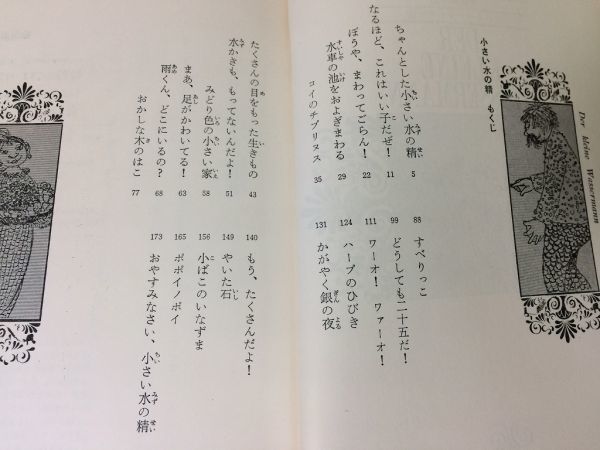 Der kleine Wassermann
小さい水の精 もくじ
ちゃんとした小さい水の精 5
なるほど、これはいい子だぜ! 11
ぼうや、まわってごらん! 22
水車の池をおよぎまわる 29
コイのチプリヌス 35
たくさんの目をもった生きもの 43
水かきも、もってないんだよ! 51
みどり色の小さい家 58
まあ、足がかわいてる! 63
雨くん、どこにいるの? 68
おかしな木のはこ 77
88 すべりっこ
99 どうしても二十五だ!
111 ワーオ! ワァーオ!
124 ハープのひびき
131 かがやく銀の夜
140 もう、たくさんだよ!
149 やいた石
156 小ばこのいなずま
165 ポポイノポイ
173 おやすみなさい、小さい水の精